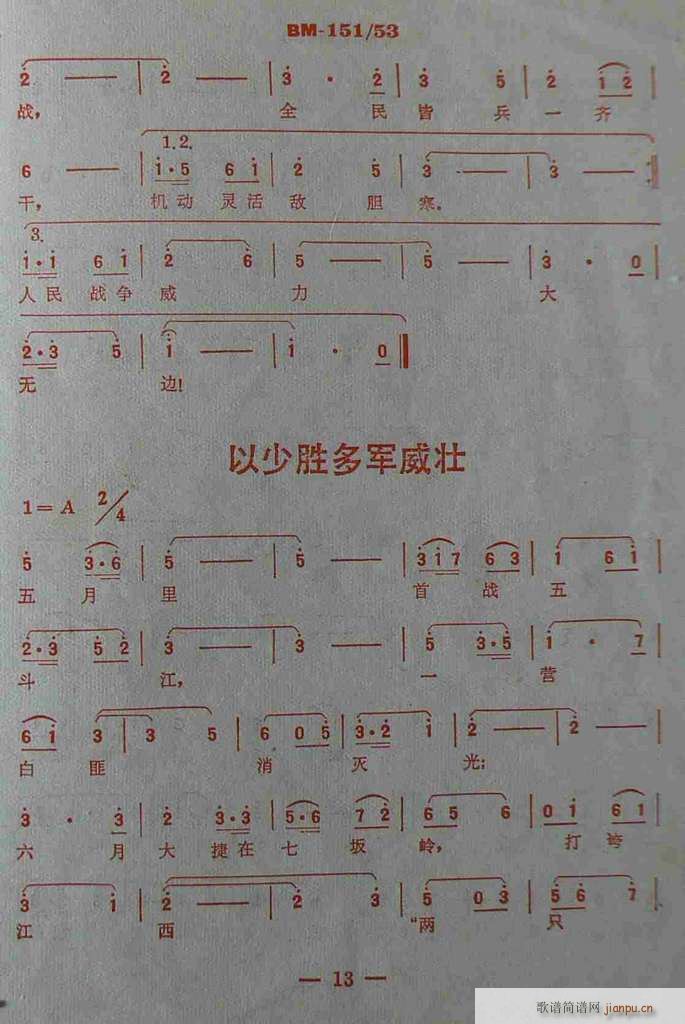 BM-151/53
2̇ — — | 2̇ — — | 3̇ · 2̇ | 3̇ 5 | 2̇ 1̇ 2̇ |
战， 全 民 皆 兵 一 齐
1.2.
6 — — | 1̇·5 6 1̇ | 2̇ 5 | 3 — — | 3 — — :|
干， 机动 灵活 敌 胆 寒。
3.
1̇·1̇ 6 1̇ | 2̇ 6 | 5 — — | 5 — — | 3̇ · 0 |
人民 战争 威 力 大
2̇·3̇ 5 | 1̇ — — | 1̇ · 0 ||
无 边!
以少胜多军威壮
1=A 2/4
5̇ 3̇·6̇ | 5̇ — — | 5̇ — — | 3̇ 1̇ 7 6 3 | 1̇ 6 1̇ |
五 月 里 首 战 五
2̇·3̇ 5 2̇ | 3̇ — — | 3̇ — — | 5 3̇·5 | 1̇ · 7 |
斗 江， 一 营
6 1̇ 3 | 3 5 | 6 0 5 | 3̇·2̇ 1̇ | 2̇ — — | 2̇ — — |
白 匪 消 灭 光;
3̇ · 3̇ | 2̇ 3̇·3̇ | 5·6 7 2̇ | 6 5 6 | 0 1̇ 6 1̇ |
六 月 大 捷在 七 坂 岭， 打 垮
3̇ 1̇ | 2̇ — — | 2̇ 3̇ | 5 0 3 | 5 6 7 |
江 西 “两 只
— 13 —
歌谱简谱网
jianpu.cn